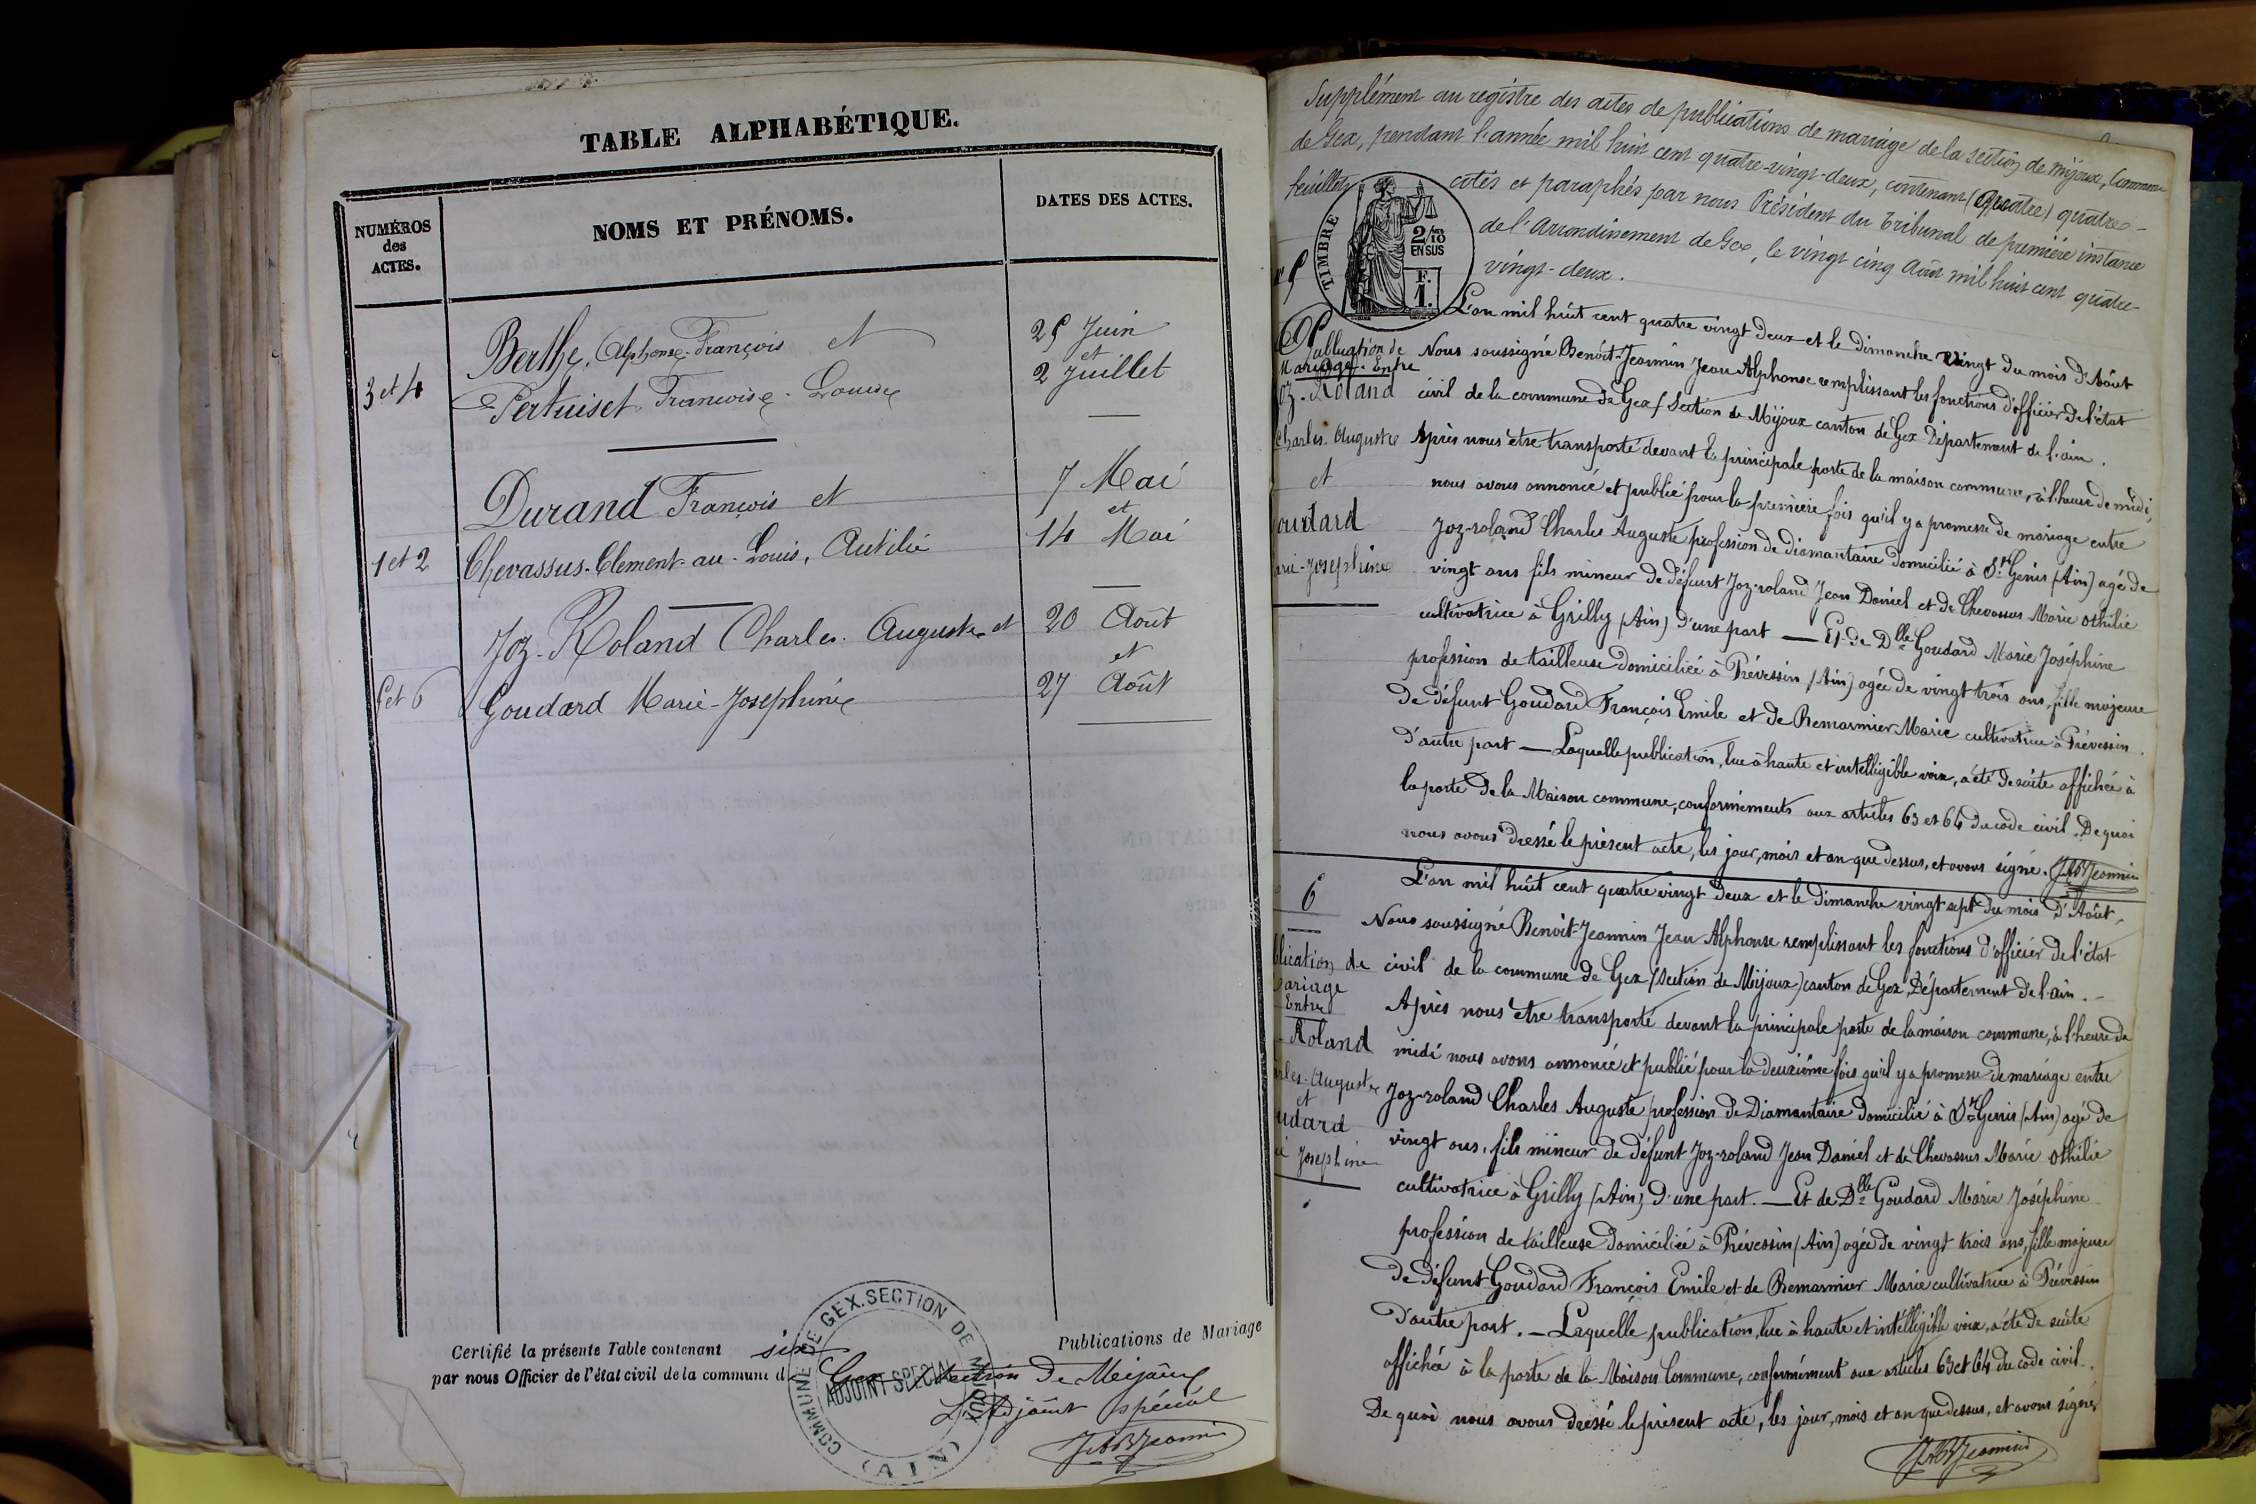 TABLE ALPHABÉTIQUE.
NUMÉROS
des
ACTES.
NOMS ET PRÉNOMS.
DATES DES ACTES.
Berthe, Alphonse-François et
25 Juin
et
3 et 4
Pertuiset Françoise-Louise
2 Juillet
Durand François et
7 Mai
et
1 et 2
Chevassus-Clement-au-Louis, Autilie
14 Mai
Joz-Roland Charles-Auguste et
20 Août
et
5 et 6
Goudard Marie-Joséphine
27 Août
Certifié la présente Table contenant six Publications de Mariage
par nous Officier de l'état civil de la commune d Gex Section De Mijoux
L'Adjoint spécial
JAB Jeannin
COMMUNE DE GEX. SECTION DE MIJOUX
ADJOINT SPECIAL
(AIN)
Supplément au registre des actes de publications de mariage de la section de mijoux, Commune
de Gex, pendant l'année mil huit cent quatre-vingt-deux, contenant (Quatre) quatre-
feuillets cotés et paraphés par nous Président du Tribunal de première instance
de l'arrondissement de Gex, le vingt cinq Août mil huit cent quatre-
vingt-deux.
TIMBRE
2/10
EN SUS
F.
1.
5
L'an mil huit cent quatre vingt deux et le dimanche vingt du mois d'Août
Publication de
Mariage Entre
Joz-Roland
Charles-Auguste
et
oudard
arie-Joséphine
Nous soussigné Benoit-Jeannin Jean Alphonse remplissant les fonctions d'officier de l'état
civil de la commune de Gex (Section de Mijoux canton de Gex Département de l'ain.
Après nous être transporté devant la principale porte de la maison commune, à l'heure de midi,
nous avons annoncé et publié pour la première fois qu'il y a promesse de mariage entre
Joz-roland Charles Auguste profession de diamantaire domicilié à St Genis (Ain) agé de
vingt ans fils mineur de défunt Joz-roland Jean Daniel et de Chevassus Marie Othilie
cultivatrice à Grilly (Ain) d'une part — Et de Dlle Goudard Marie Joséphine
profession de tailleuse domiciliée à Prévessin (Ain) agée de vingt trois ans, fille majeure
de défunt Goudard François Emile et de Remarmier Marie cultivatrice à Prévessin.
d'autre part — Laquelle publication, lue à haute et intelligible voix, a été de suite affichée à
la porte de la Maison commune, conformément aux articles 63 et 64 du code civil. De quoi
nous avons dressé le présent acte, les jour, mois et an que dessus, et avons signé. JAB Jeannin
6
L'an mil huit cent quatre vingt deux et le dimanche vingt sept du mois d'Août,
blication de
ariage
Entre
Roland
rles-Auguste
et
udard
Joséphine
Nous soussigné Benoit-Jeannin Jean Alphonse remplissant les fonctions d'officier de l'état
civil de la commune de Gex (Section de Mijoux) canton de Gex, Département de l'ain.
Après nous être transporté devant la principale porte de la maison commune, à l'heure de
midi nous avons annoncé et publié pour la deuxième fois qu'il y a promesse de mariage entre
Joz-roland Charles Auguste profession de Diamantaire domicilié à St Genis (Ain) agé de
vingt ans, fils mineur de défunt Joz-roland Jean Daniel et de Chevassus Marie Othilie
cultivatrice à Grilly (Ain) d'une part. — Et de Dlle Goudard Marie Joséphine
profession de tailleuse domiciliée à Prévessin (Ain) agée de vingt trois ans, fille majeure
de défunt Goudard François Emile et de Remarmier Marie cultivatrice à Prévessin
d'autre part. — Laquelle publication, lue à haute et intelligible voix, a été de suite
affichée à la porte de la Maison Commune, conformément aux articles 63 et 64 du code civil.
De quoi nous avons dressé le présent acte, les jour, mois et an que dessus, et avons signé,
JAB Jeannin